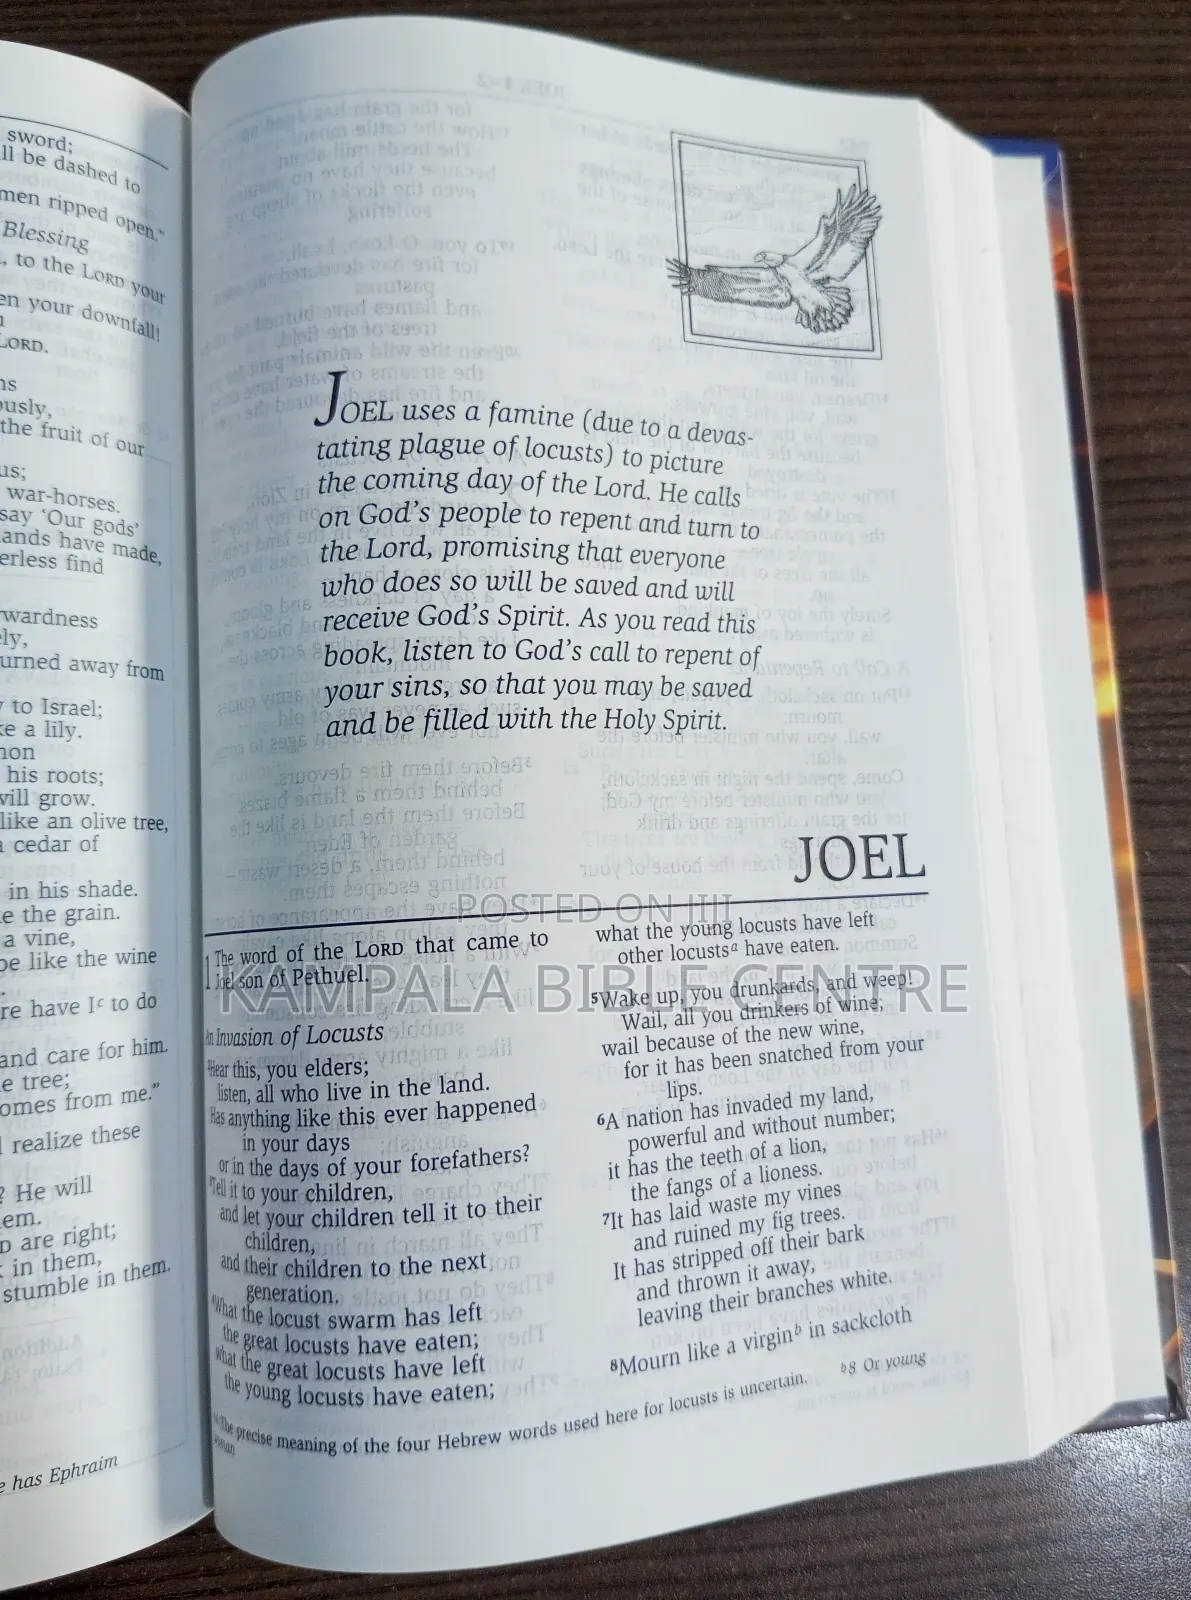 sword;
ll be dashed to
men ripped open."
Blessing
, to the LORD your
en your downfall!
LORD.
ously,
the fruit of our
us;
war-horses.
say ‘Our gods’
ands have made,
erless find
wardness
ely,
urned away from
to Israel;
ke a lily.
non
his roots;
will grow.
like an olive tree,
cedar of
in his shade.
e the grain.
a vine,
be like the wine
re have I c to do
and care for him.
e tree;
omes from me."
realize these
? He will
em.
D are right;
in them,
stumble in them.
e has Ephraim
JOEL uses a famine (due to a devas-
tating plague of locusts) to picture
the coming day of the Lord. He calls
on God's people to repent and turn to
the Lord, promising that everyone
who does so will be saved and will
receive God's Spirit. As you read this
book, listen to God's call to repent of
your sins, so that you may be saved
and be filled with the Holy Spirit.
JOEL
POSTED ON JIJI
KAMPALA BIBLE CENTRE
1 The word of the LORD that came to
Joel son of Pethuel.
An Invasion of Locusts
2Hear this, you elders;
listen, all who live in the land.
Has anything like this ever happened
in your days
or in the days of your forefathers?
3Tell it to your children,
and let your children tell it to their
children,
and their children to the next
generation.
4What the locust swarm has left
the great locusts have eaten;
what the great locusts have left
the young locusts have eaten;
what the young locusts have left
other locusts a have eaten.
5Wake up, you drunkards, and weep!
Wail, all you drinkers of wine;
wail because of the new wine,
for it has been snatched from your
lips.
6A nation has invaded my land,
powerful and without number;
it has the teeth of a lion,
the fangs of a lioness.
7It has laid waste my vines
and ruined my fig trees.
It has stripped off their bark
and thrown it away,
leaving their branches white.
8Mourn like a virgin b in sackcloth
a4 The precise meaning of the four Hebrew words used here for locusts is uncertain. b8 Or young
woman